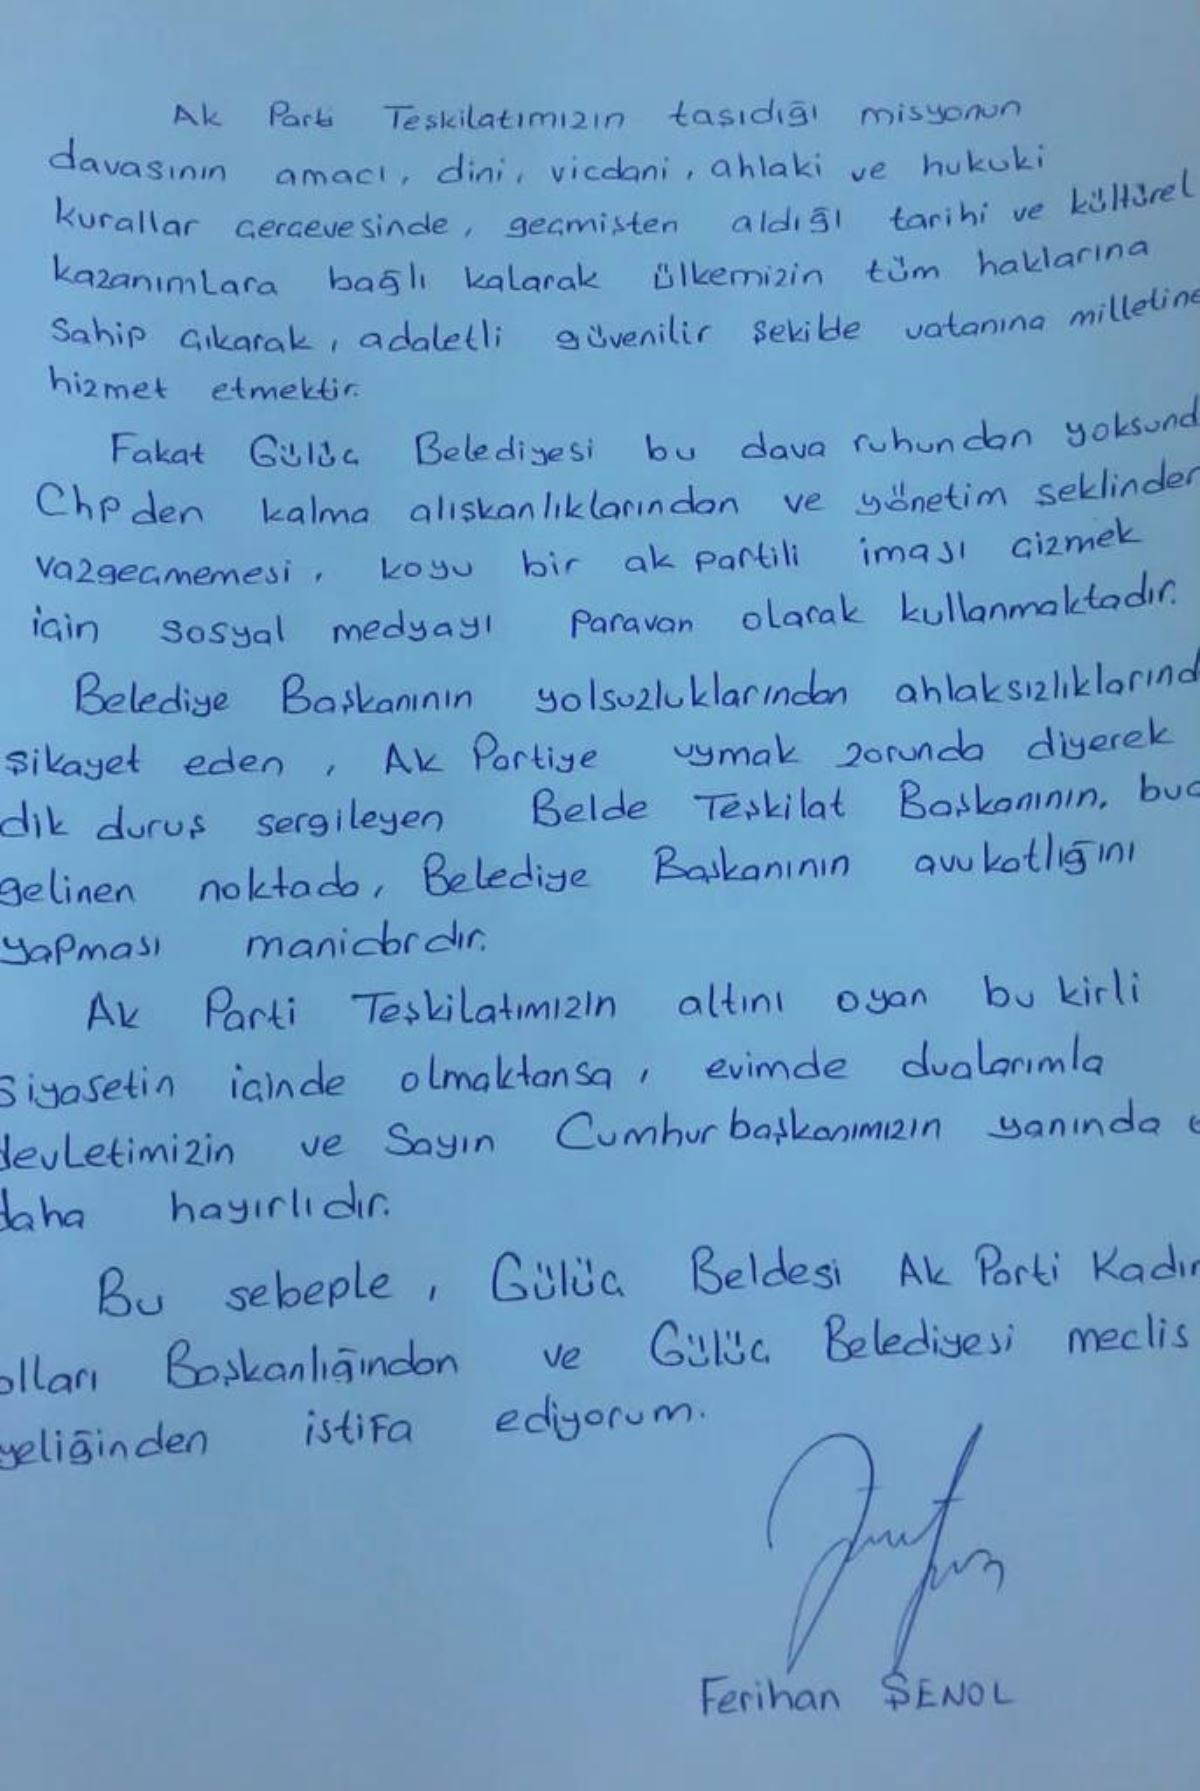 Ak Parti Teşkilatımızın taşıdığı misyonun
davasının amacı, dini, vicdani, ahlaki ve hukuki
kurallar çerçevesinde, geçmişten aldığı tarihi ve kültürel
kazanımlara bağlı kalarak ülkemizin tüm haklarına
Sahip çıkarak, adaletli güvenilir şekilde vatanına milletine
hizmet etmektir.
Fakat Gülüç Belediyesi bu dava ruhundan yoksund
Chp den kalma alışkanlıklarından ve yönetim şeklinden
vazgeçmemesi, koyu bir ak partili imajı çizmek
için sosyal medyayı paravan olarak kullanmaktadır.
Belediye Başkanının yolsuzluklarından ahlaksızlıklarınd
şikayet eden, Ak Partiye uymak zorunda diyerek
dik duruş sergileyen Belde Teşkilat Başkanının, bug
gelinen noktada, Belediye Başkanının avukatlığını
yapması manidardır.
Ak Parti Teşkilatımızın altını oyan bu kirli
siyasetin içinde olmaktansa, evimde dualarımla
devletimizin ve Sayın Cumhurbaşkanımızın yanında
daha hayırlıdır.
Bu sebeple, Gülüç Beldesi Ak Parti Kadın
olları Başkanlığından ve Gülüç Belediyesi meclis
yeliğinden istifa ediyorum.
Ferihan ŞENOL